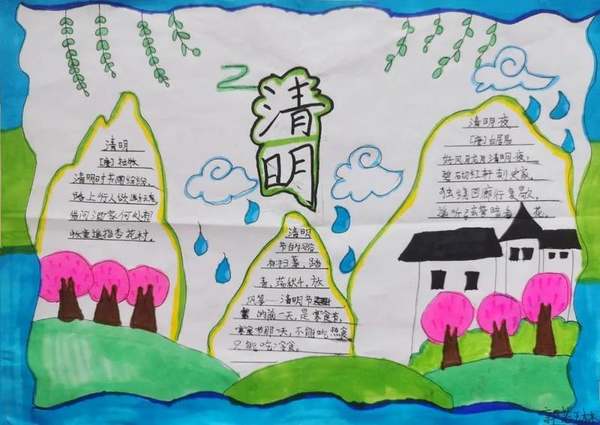 清明
清明
[唐]杜牧
清明时节雨纷纷,
路上行人欲断魂
借问酒家何处有
牧童遥指杏花村,
清明
节的习俗
有扫墓,踏
青,荡秋千,放
风筝——清明节
的前一天,是寒食节,
寒食节那天,不能吃热食
只能吃冷食。
清明夜
[唐]白居易
好风胧月清明夜,
碧砌红轩刺史家,
独绕回廊行复歇
遥听弦管暗看花。